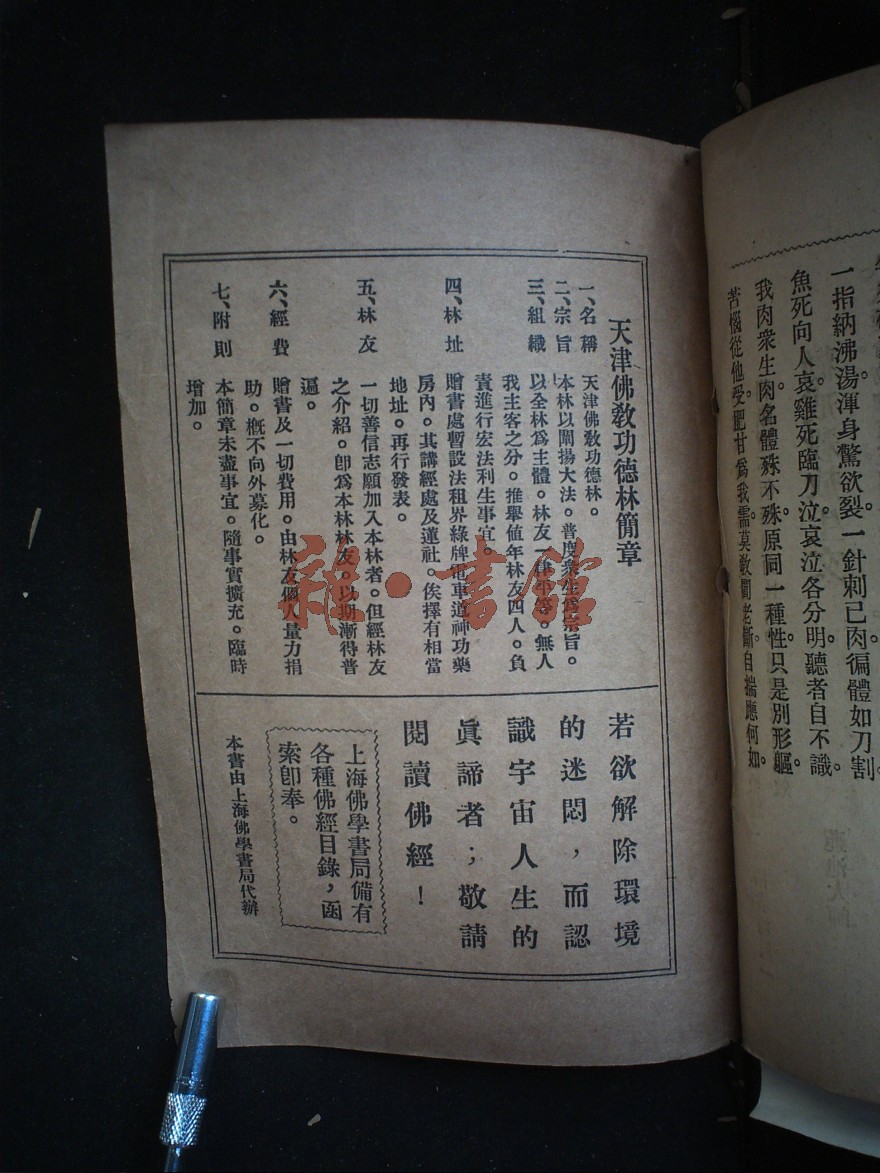 一指納沸湯。渾身驚欲裂。一針刺己肉。徧體如刀割。
魚死向人哀。雞死臨刀泣。哀泣各分明。聽者自不識。
我肉衆生肉。名體殊不殊。原同一種性。只是別形軀。
苦惱從他受。肥甘爲我需。莫敎閻老斷。自揣應何如。
天津佛敎功德林簡章
一、名稱　天津佛敎功德林。
二、宗旨　本林以闡揚大法。普度衆生爲宗旨。
三、組織　以全林爲主體。林友一律平等。無人
我主客之分。推舉値年林友四人。負
責進行宏法利生事宜。
四、林址　贈書處暫設法租界綠牌電車道神功藥
房內。其講經處及蓮社。俟擇有相當
地址。再行發表。
五、林友　一切善信志願加入本林者。但經林友
之介紹。卽爲本林林友。以期漸待普
遍。
六、經費　贈書及一切費用。由林友個人量力捐
助。槪不向外募化。
七、附則　本簡章未盡事宜。隨事實擴充。臨時
增加。
若欲解除環境
的迷悶，而認
識宇宙人生的
眞諦者；敬請
閱讀佛經！
上海佛學書局備有
各種佛經目錄，函
索卽奉。
本書由上海佛學書局代辦
雜·書館